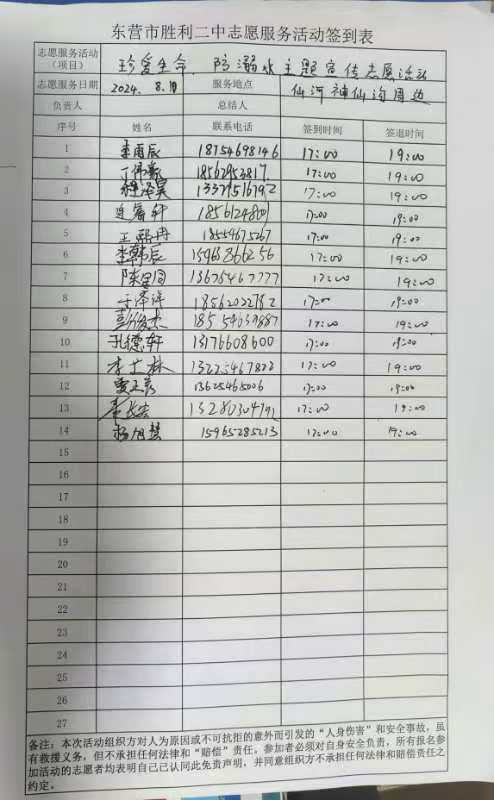 东营市胜利二中志愿服务活动签到表
志愿服务活动（项目） 珍爱生命、防溺水主题宣传志愿活动
志愿服务日期 2024. 8. 服务地点 仙河神仙沟周边
负责人 总结人
序号 姓名 联系电话 签到时间 签退时间
1 李雨辰 18754698146 17:00 19:00
2 17:00 19:00
3 程泽昊 17:00 19:00
4 17:00 19:00
5 王熙冉 18554675267 17:00 19:00
6 李韩辰 17:00 19:00
7 13675467777 17:00 19:00
8 于泽洋 17:00 19:00
9 彭俊杰 17:00 19:00
10 孔德轩 13176608600 17:00 19:00
11 李士林 17:00 19:00
12 13625465006 17:00 19:00
13 17:00 19:00
14 杨旭慧 15965285213 17:00 19:00
15
16
17
18
19
20
21
22
23
24
25
26
27
备注：本次活动组织方对人为原因或不可抗拒的意外而引发的“人身伤害”和安全事故，虽
有救援义务，但不承担任何法律和“赔偿”责任，参加者必须对自身安全负责，所有报名参
加活动的志愿者均表明自己已认同此免责声明，并同意组织方不承担任何法律和赔偿责任之
约定。